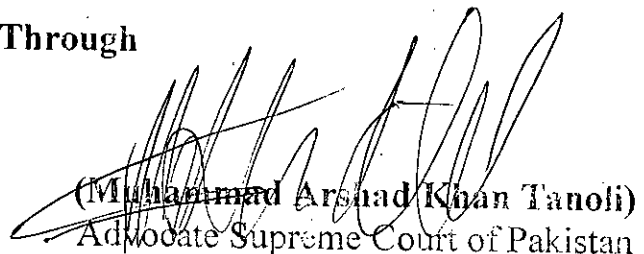 Through
(Muhammad Arshad Khan Tanoli)
Advocate Supreme Court of Pakistan